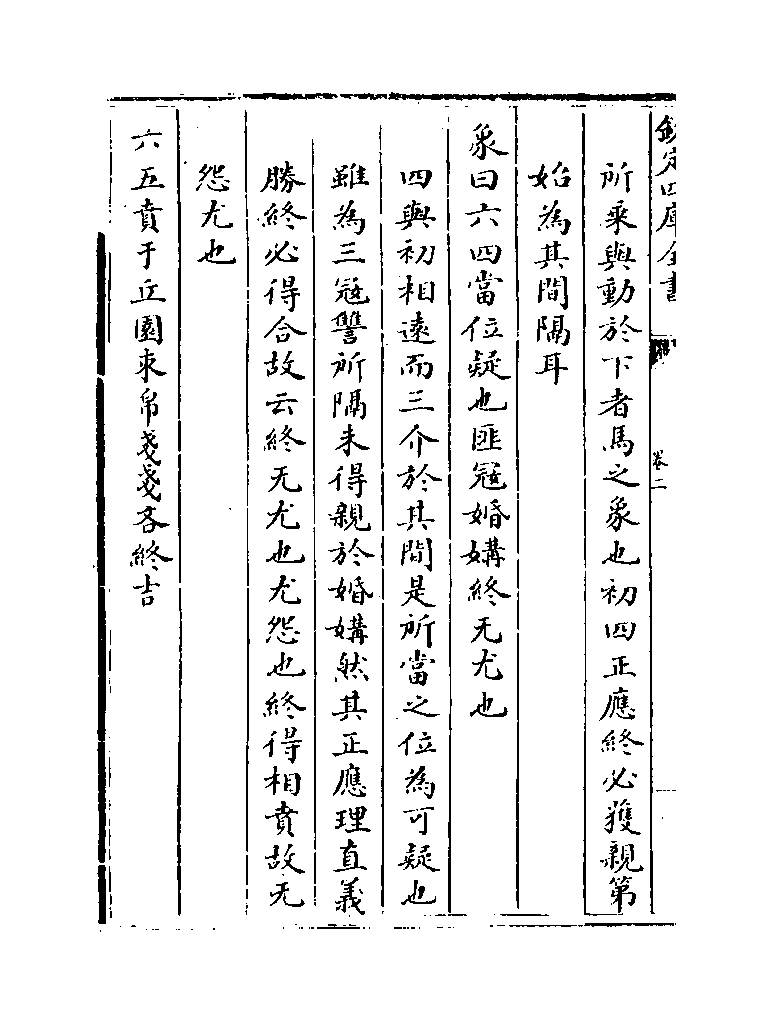 欽定四庫全書
卷二
所乘與動於下者馬之象也初四正應終必獲親第
始為其間隔耳
象曰六四當位疑也匪寇婚媾終无尤也
四與初相遠而三介於其間是所當之位為可疑也
雖為三寇讐所隔未得親於婚媾然其正應理直義
勝終必得合故云終无尤也尤怨也終得相賁故无
怨尤也
六五賁于丘園束帛戔戔吝終吉